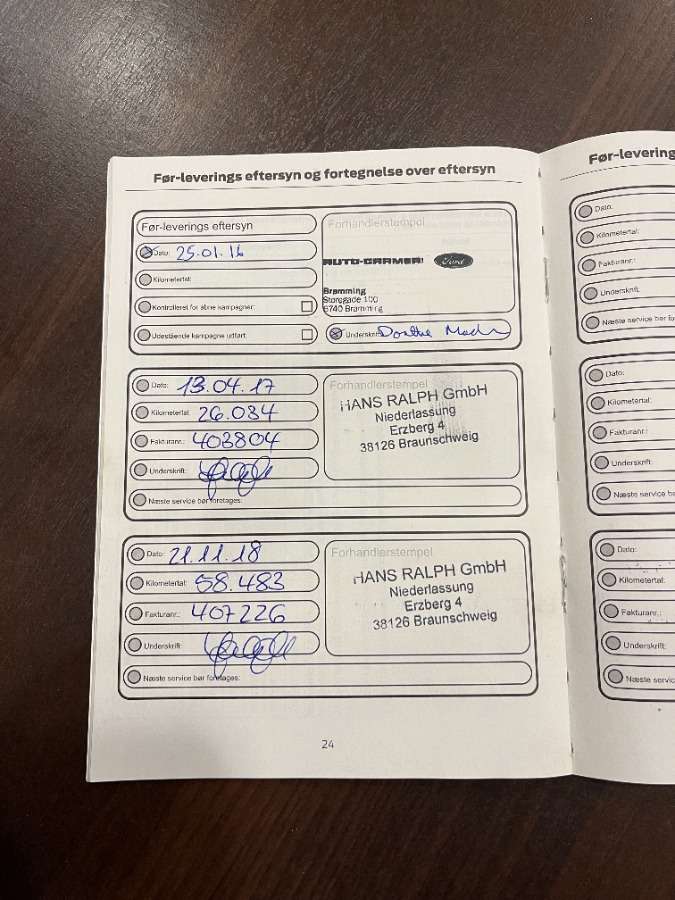 Før-leverings eftersyn og fortegnelse over eftersyn
Før-leverings eftersyn
Dato: 25.01.16
Kilometertal:
Kontrolleret for åbne kampagner
Udestående kampagne udført
Forhandlerstempel
AUTO-CARMER!
Ford
Bramming
Storegade 100
6740 Bramming
Underskrift:
Dato: 13.04.17
Kilometertal: 26.034
Fakturanr.: 403804
Underskrift:
Næste service bør foretages:
Forhandlerstempel
HANS RALPH GmbH
Niederlassung
Erzberg 4
38126 Braunschweig
Dato: 21.11.18
Kilometertal: 58.483
Fakturanr.: 407226
Underskrift:
Næste service bør foretages:
Forhandlerstempel
HANS RALPH GmbH
Niederlassung
Erzberg 4
38126 Braunschweig
24
Før-levering
Dato:
Kilometertal:
Fakturanr.:
Underskrift:
Næste service bør fo
Dato:
Kilometertal:
Fakturanr.:
Underskrift:
Næste service bør
Dato:
Kilometertal:
Fakturanr.:
Underskrift:
Næste servic